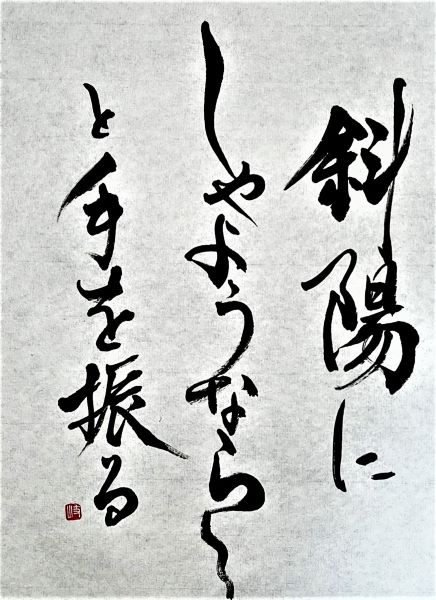 斜陽に
しゃようなら〜
と手を振る